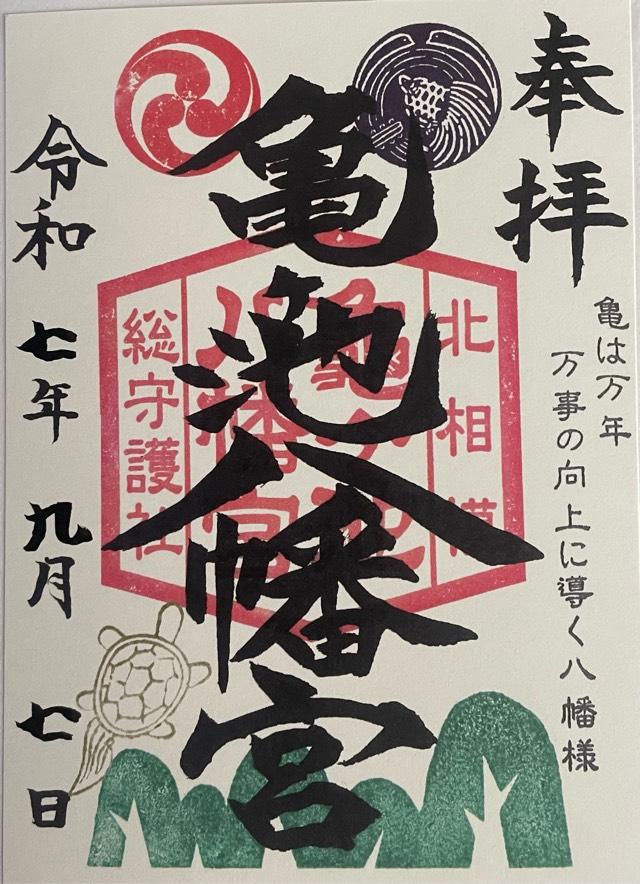 奉拝
亀は万年
万事の向上に導く八幡様
亀池八幡宮
北相模
亀ヶ池
八幡宮
総守護社
令和七年九月七日